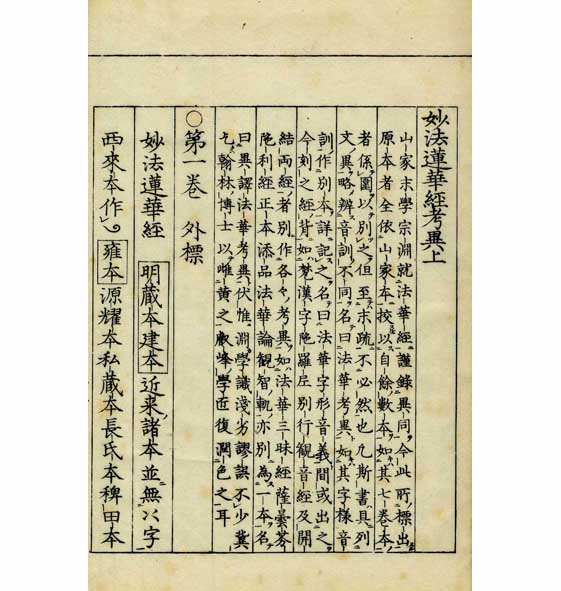 妙法蓮華經考異上
山家末學宗淵就法華經謹錄異同今此所標出
原本者全依山家本挍以自餘數本如其七卷本
者係圍以別之但至末疏不必然也凡斯書具列
文異略辨音訓不同名曰法華考異如其字樣音
訓作別本詳記之名曰法華字形音義間或出之
今刻之經背如梵漢字陀羅尼別行觀音經及開
結兩經者別作各々考異如法華三昧經薩曇芬
陀利經正本添品法華論觀智軌亦別為一本名
曰異譯法華考異伏惟淵學識淺劣謬誤不少冀
翰林博士以雌黃之叡峰學匠復潤色之耳
○第一卷 外標
妙法蓮華經 明蔵本建本近来諸本並無八字
西來本作 雍本源耀本私蔵本長氏本稗田本